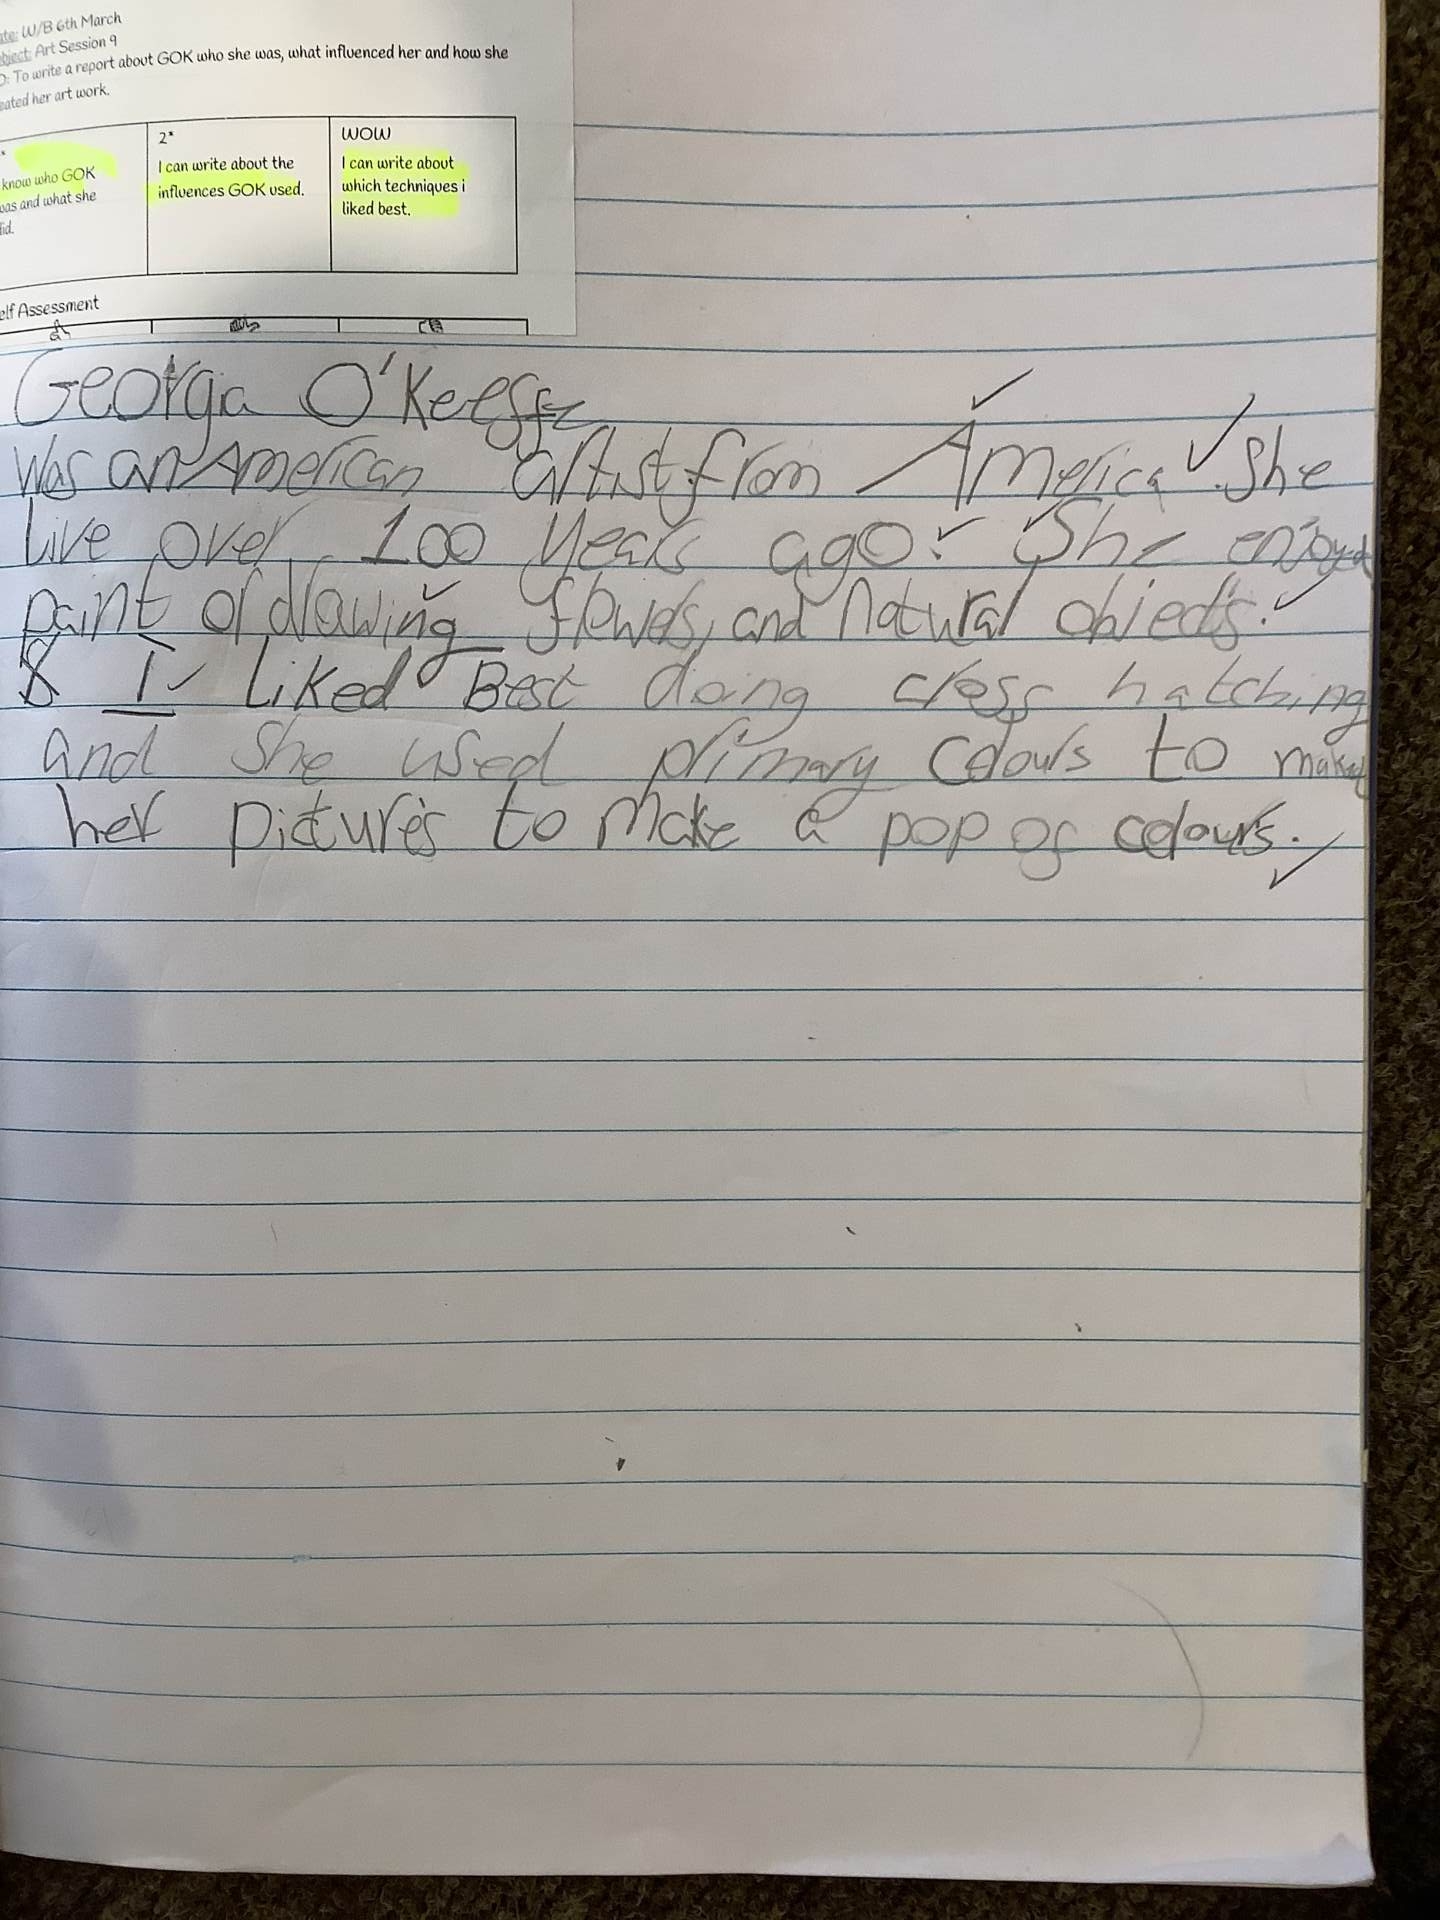 ate: W/B 6th March
bject: Art Session 9
O: To write a report about GOK who she was, what influenced her and how she
eated her art work.
know who GOK
was and what she
did.
2*
I can write about the
influences GOK used.
WOW
I can write about
which techniques i
liked best.
elf Assessment
Georga O'Keeffe
Was an American artist from America. She
live over 100 years ago. She enjoyed
paint or drawing flowers, and natural objects.
& I liked Best doing cross hatching
and she used primary colours to make
her pictures to make a pop of colours.